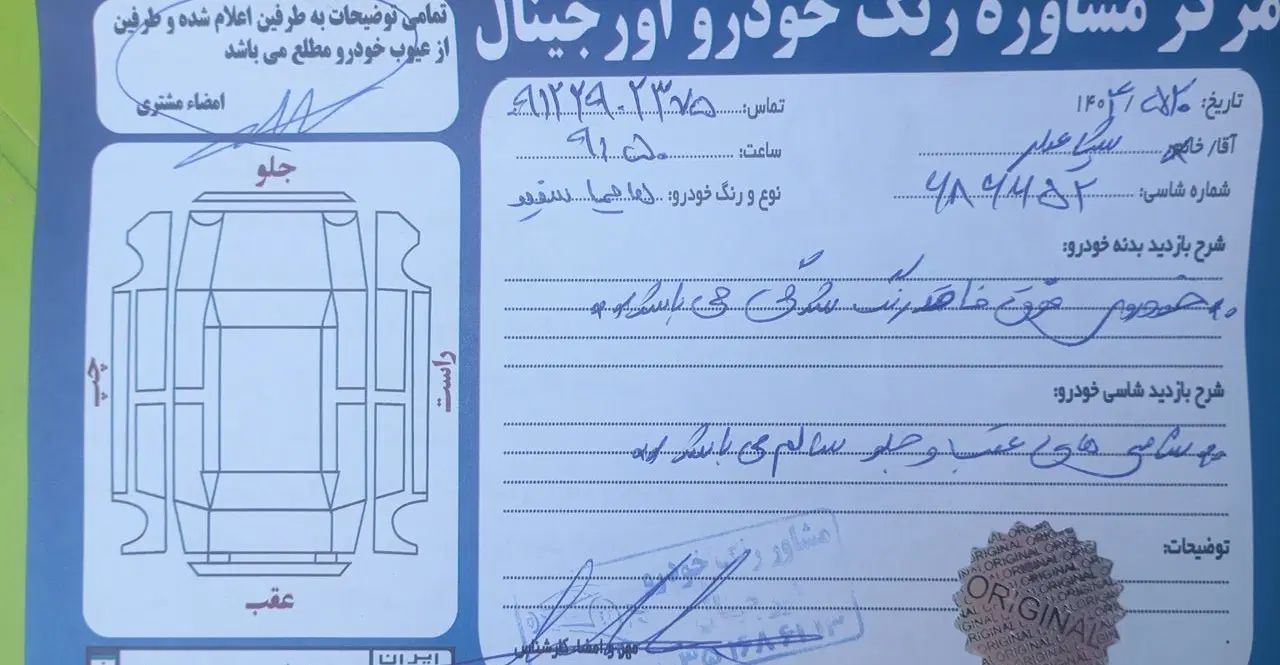 مرکز مشاوره رنگ خودرو اورجینال
تاریخ: ۱۴۰۴/۵/۲۰
تماس: ۹۱۲۲۹۰۲۳۷۵
آقا/ خانم:
ساعت: ۹/۵۰
شماره شاسی:
نوع و رنگ خودرو: سفید
شرح بازدید بدنه خودرو:
خودروی فوق فاقد رنگ شدگی می باشد
شرح بازدید شاسی خودرو:
شاسی های عقب و جلو سالم می باشد
توضیحات:
مهر و امضاء کارشناس
مشاور رنگ خودرو
ORIGINAL
تمامی توضیحات به طرفین اعلام شده و طرفین
از عیوب خودرو مطلع می باشد
امضاء مشتری
جلو
چپ
راست
عقب
ایران